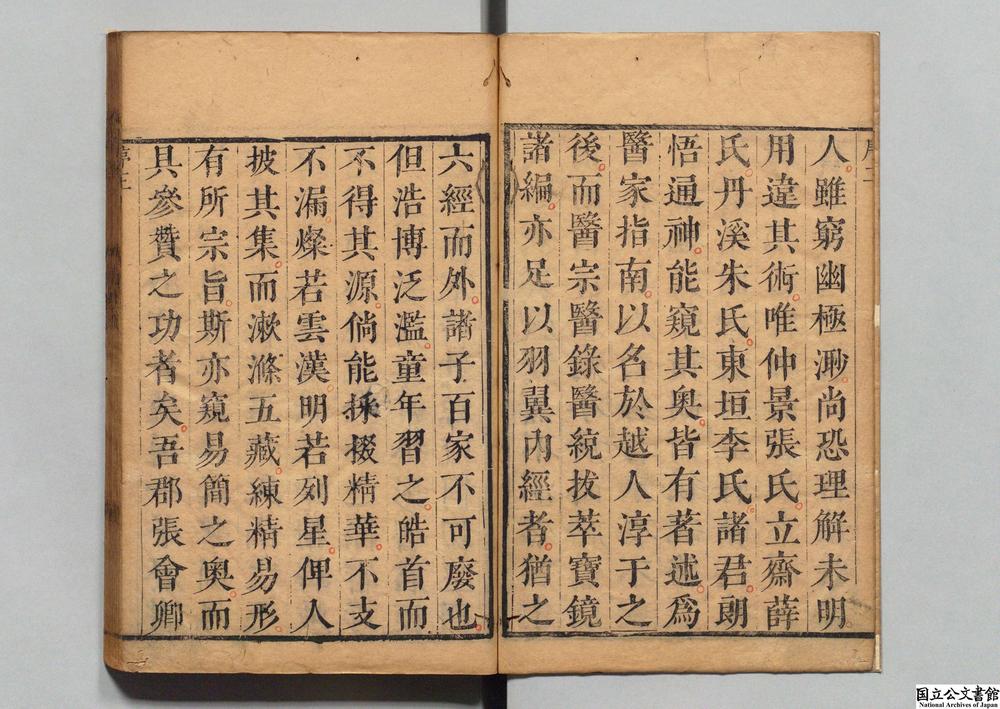 人雖窮幽極渺尚恐理解未明
用違其術唯仲景張氏立齋薛
氏丹溪朱氏東垣李氏諸君朗
悟通神能窺其奥皆有著述爲
醫家指南以名於越人淳于之
後而醫宗醫錄醫統拔萃寶鏡
諸編亦足以羽翼內經者猶之
六經而外諸子百家不可廢也
但浩博泛濫童年習之皓首而
不得其源倘能採掇精華不支
不漏燦若雲漢明若列星俾人
披其集而漱滌五藏練精易形
有所宗旨斯亦窺易簡之奥而
具參贊之功者矣吾郡張會卿
国立公文書館
National Archives of Japan